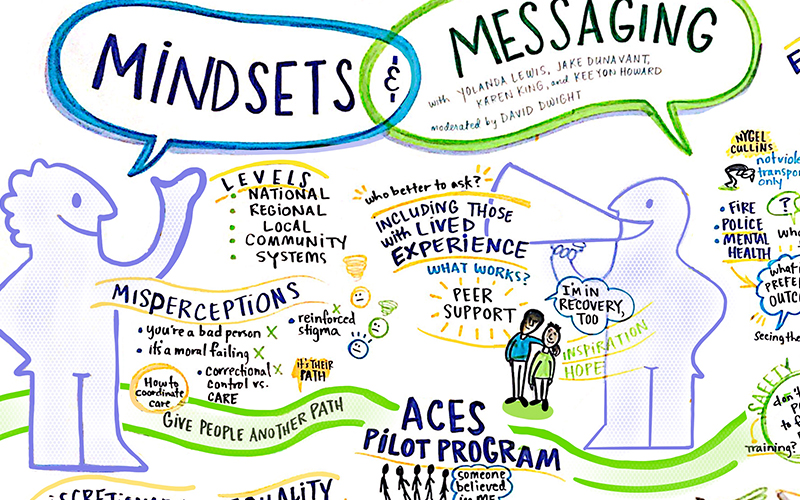 MINDSETS
&
MESSAGING
with YOLANDA LEWIS, JAKE DUNAVANT,
KAREN KING, and KEEYON HOWARD
moderated by DAVID DWIGHT
LEVELS
• NATIONAL
• REGIONAL
• LOCAL
• COMMUNITY
• SYSTEMS
who better to ask?
INCLUDING THOSE
with LIVED
EXPERIENCE
WHAT WORKS?
PEER
SUPPORT
I'M IN
RECOVERY,
TOO
INSPIRATION
HOPE
MISPERCEPTIONS
• you're a bad person X
• it's a moral failing X
• correctional X
control vs.
CARE
• reinforced X
stigma
it's THEIR
PATH
How to
coordinate
care
GIVE PEOPLE ANOTHER PATH
ACES
PILOT PROGRAM
someone
believed
in ME
NYGEL
CULLINS
not viole
transpor
only
• FIRE
• POLICE
• MENTAL
HEALTH
?
wha
what
PREFE
OUTCO
Seeing the
SAFETY
don't
P
to f
training?